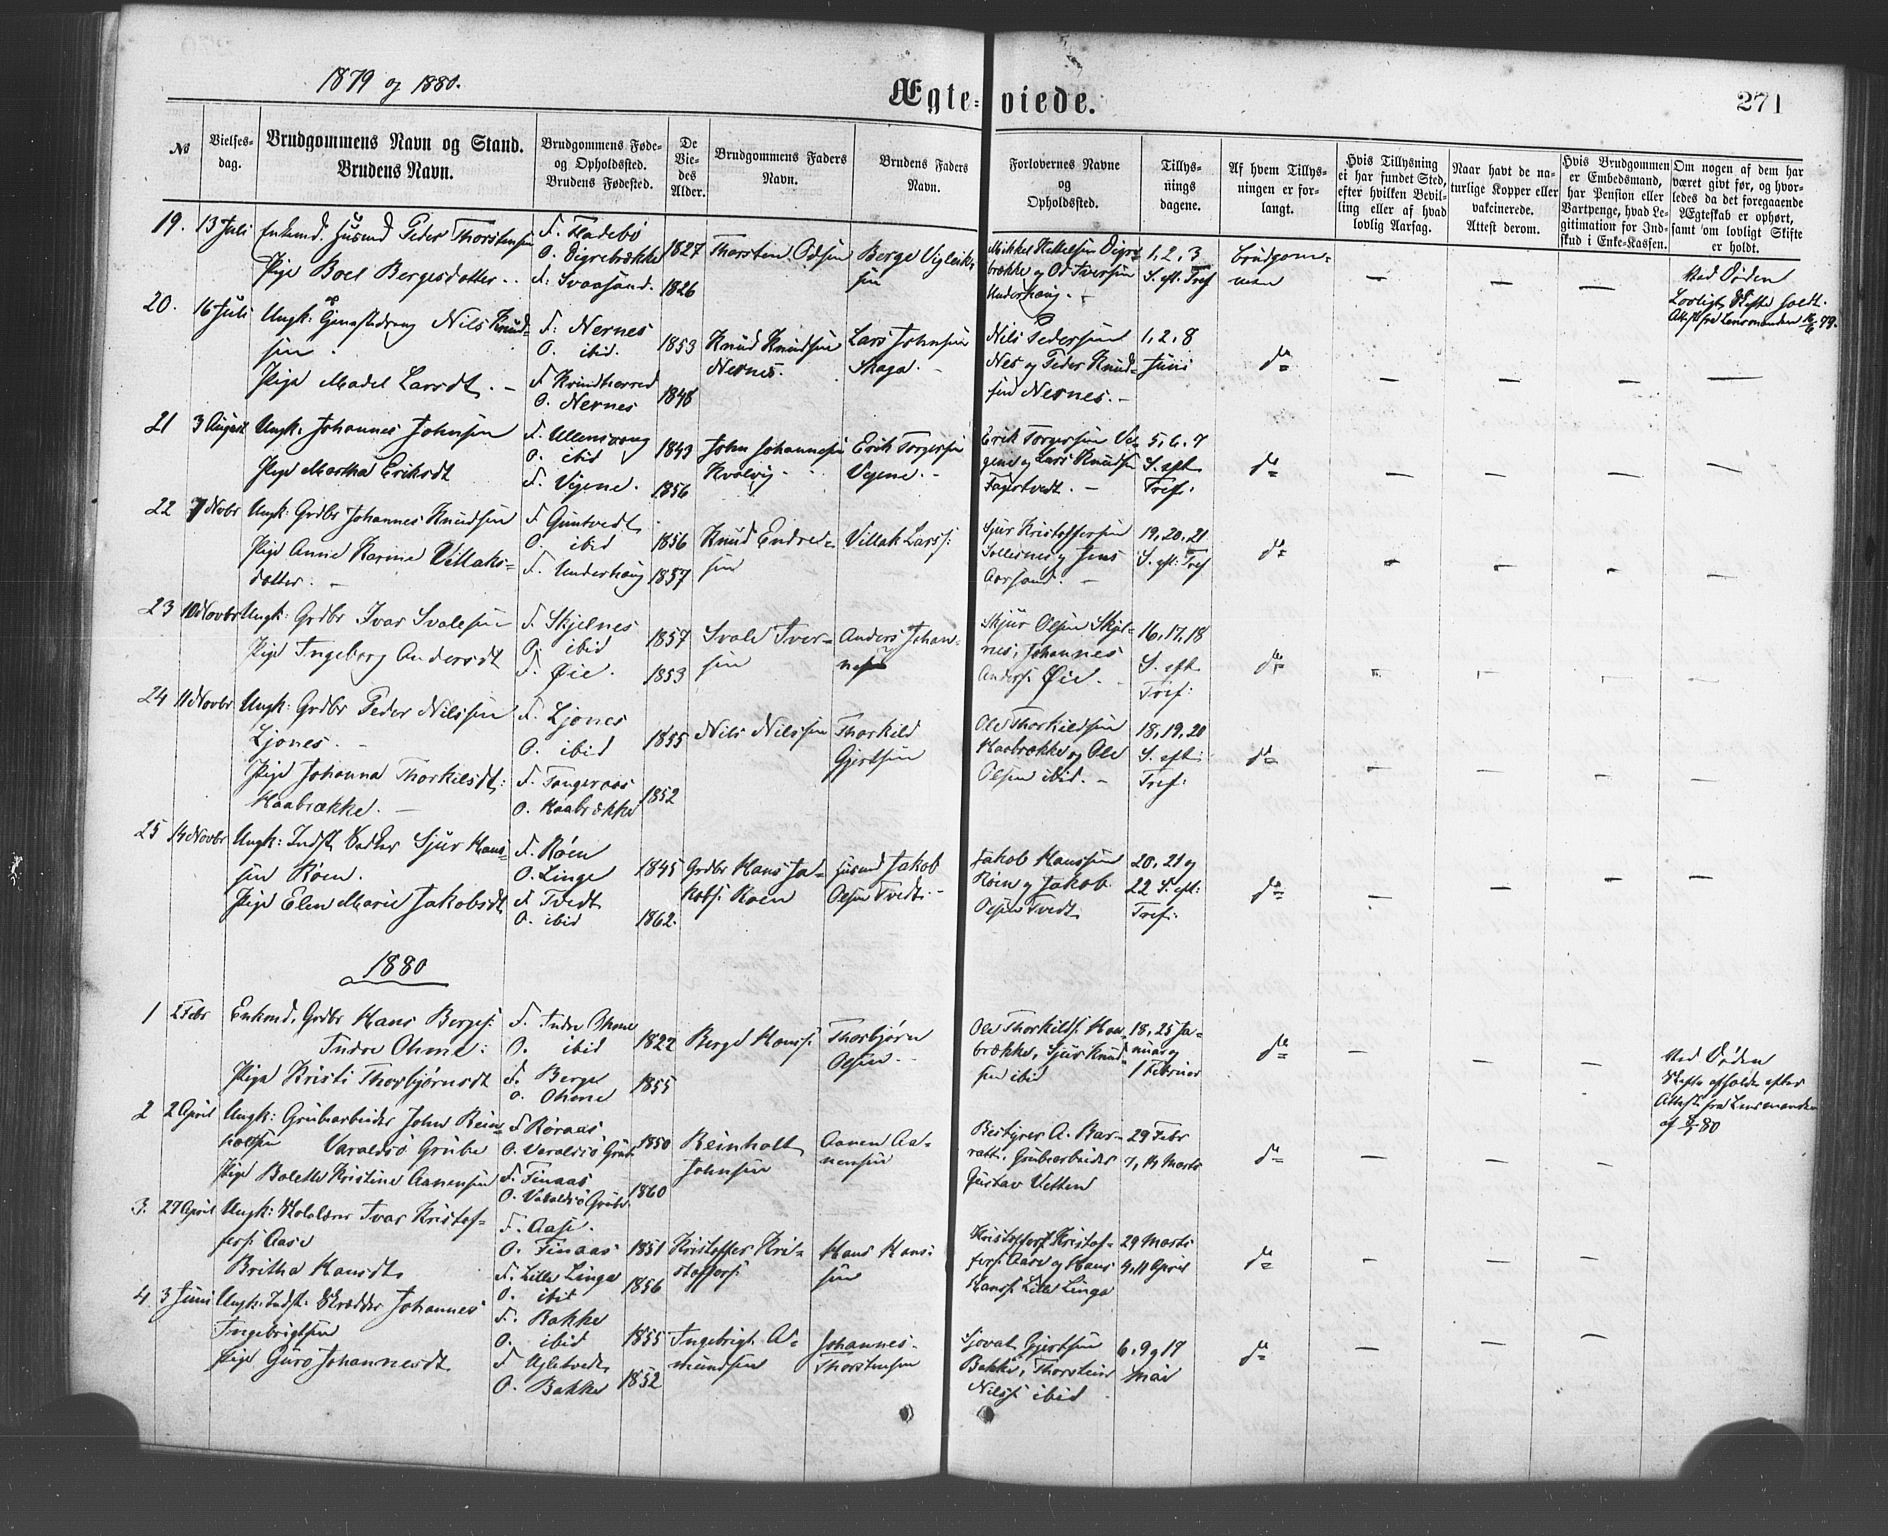 1879 og 1880.
Ægte-viede.
271
№
Vielses-
dag.
Brudgommens Navn og Stand.
Brudens Navn.
Brudgommens Føde-
og Opholdsted.
Brudens Fødested.
De
Vie-
des
Alder.
Brudgommens Faders
Navn.
Brudens Faders
Navn.
Forlovernes Navne
og
Opholdsted.
Tillys-
nings
dagene.
Af hvem Tillys-
ningen er for-
langt.
Hvis Tillysning
ei har fundet Sted,
efter hvilken Bevil-
ling eller af hvad
lovlig Aarsag.
Naar havt de na-
turlige Kopper eller
vakcinerede.
Attest derom.
Hvis Brudgommen
er Embedsmand,
har Pension eller
Vartpenge, hvad Le-
gitimation for Ind-
skud i Enke-Kassen.
Om nogen af dem har
været givt før, og hvor-
ledes da det foregaaende
Ægteskab er ophørt,
samt om lovligt Skifte
er holdt.
19. 13 Juli Enkemd. Husmd Peder Thorstensen
Pige Boel Bergesdatter.
F. Fladebø
O. Digrebrække
F. Svaasand.
1827
1826
Thorsten Odsen
Berge Vigleik-
sen
Mikkel Hettelsen Digre-
brække og Od Iversen
Underhaug. -
1, 2, 3
S. eft. Tref
brudgom-
men
— — —
ved Døden
Lovligt Skifte holdt.
Attest fra Lensmanden 16/6 79.
20. 16 Juli Ungk: Gjæstedreng Nils Knud-
sen.
Pige Madel Larsdt. -
F. Nernes
O. ibid.
F. Kvindherred
O. Nernes
1853
1848
Knud Knudsen
Nernes.
Lars Johnsen
Skaga. -
Nils Pedersen
Nes og Peder Knud-
sen Nernes. -
1, 2, 8
Juni
do
— — — —
21 3 August Ungk: Johannes Johnsen
Pige Martha Eriksdt
F. Ullensvang
O. ibid
F. Vigene.
1849
1856
John Johannesen
Kvalvig -
Erik Torgersen
Vigene. -
Erik Torgersen Vi-
gene og Lars Knudsen
Fagertvedt. -
5, 6, 7
S. eft
Tref.
do
— — — —
22 7 Novbr Ungk: Grdbr Johannes Knudsen
Pige Anne Karine Villaks-
datter. -
F. Guntvedt
O. ibid
F. Underhaug
1856
1857
Knud Endre-
sen
Villak Larss:
Sjur Kristoffersen
Sollesnes og Jens
Aarsand. -
19, 20, 21
S. eft: Tref
do
— — — —
23 10 Novbr Ungk: Grdbr Ivar Svalesen
Pige Ingeborg Andersdt
F. Skjelnes
O. ibid
F. Øie.
1857
1853
Svale Iver-
sen
Anders Johan-
nes
Skjur Olsen Skjel-
nes, Johannes
Anders: Øie. -
16, 17, 18
S. eft
Tref:
do
— — — —
24 11 Novbr Ungk: Grdbr Peder Nilssen
Ljones. -
Pige Johanna Thorkilsdt:
Haabrække. -
F. Ljones
O. ibid
F. Tangeraas
O. Haabrække
1855
1852
Nils Nilssen
Thorkild
Gjertsen
Ole Thorkildsen
Haabrække og Ole
Olsen ibid. -
18, 19, 20
S. eft:
Tref:
do
— — — —
25 14 Novbr Ungk: Indst. Sjur Hans-
sen Røen.
Pige Elen Marie Jakobsdt
F. Røen
O. Linge
F. Tvedt
O. ibid
1845
1862.
Grdbr Hans Ja-
kobs: Roen
Husmd Jakob
Olsen Tvedt. -
Jakob Hanssen
Røen og Jakob
Olsen Tvedt
20, 21 og
22 S. eft:
Tref:
do
— — — —
1880
1 2 Febr Enkemd, Grdbr Hans Berges:
Indre Ohme:
Pige Kristi Thorbjørnsdt
F. Indre Ohme
O. ibid
F. Berge
O. Ohme
1822
1855
Berge Hanss:
Thorbjørn
Olsen. -
Ole Thorkilds: Haa-
brække, Sjur Knud-
sen ibid
18, 25 Ja-
nuar og
1 Februar
do
— — —
ved Døden
Skifte afholdt efter
Attest fra Lensmanden
af 2/1 80
2 2 April Ungk: Grubearbeider John Rein-
holtsen Varaldsø Grube
Pige Bolette Kristine Aanensen
F. Røraas
O. Varaldsø Grube
F. Finaas
O. Varaldsø Grube
1850
1860
Reinholt
Johnsen
Aanen Aa-
nensen
Bestyrer A. Bar-
ratt. Grubearbeider
Gustav Vetten
29 Febr
7, 14 Marts
do
— — — —
3. 27 April Ungk: Skolelærer Ivar Kristof-
fers: Aase
Britha Hansdt.
F. Aase.
O. Finaas
F. Lille Linga
O. ibid
1851
1856
Kristoffer Kri-
stoffers:
Hans Hans:
sen
Kristoffer Kristof-
fers: Aase og Hans
Hanss: Lille Linga
29 Marts
4, 11 April
do
— — — —
4 3 Juni Ungk: Indst: Skrædder Johannes
Ingebrigtsen
Pige Guro Johannesdt
F. Bakke
O. ibid
F.
O. Bakke
1855
1852
Ingebrigt A-
mundsen
Johannes.
Thorstensen
Sjovat Gjertsen
Bakke, Thorstein
Nilss: ibid
6, 9 og 17
Mai
do
— — —